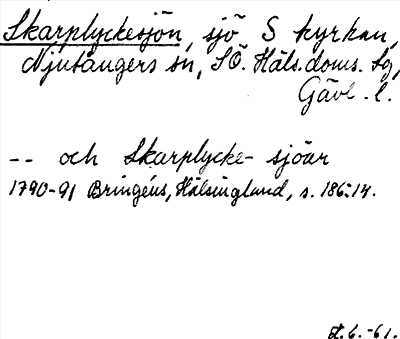 Skarplyckesjön, sjö S kyrkan,
Njutångers sn, SÖ. Häls. doms. tg,
Gävl. l.
-- och Skarplycke- sjöar
1790-91 Bringéus, Hälsingland, s. 186:14.
st. 6. -61.